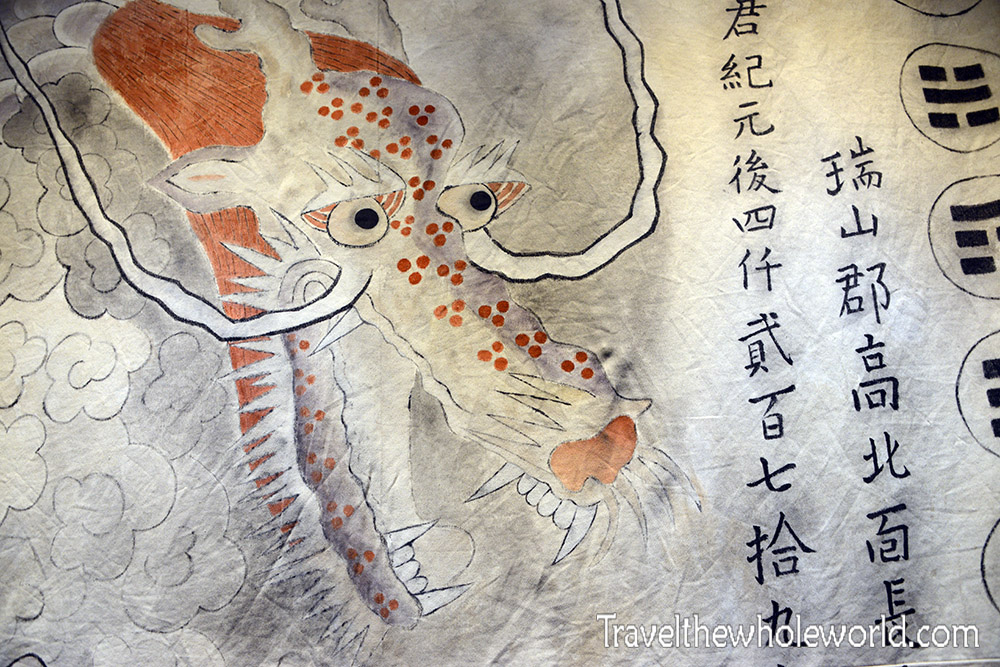 瑞山郡高北面長
君紀元後四仟貳百七拾九
Travelthewholeworld.com